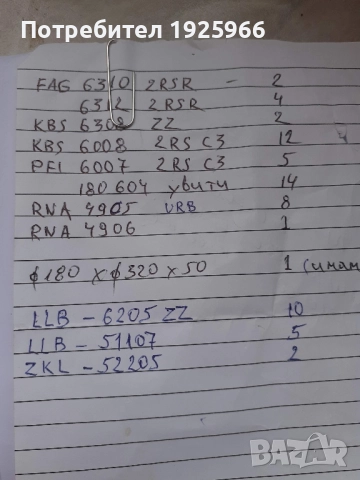 Потребител 1925966
FAG 6310 2RSR - 2
6312 2RSR 4
KBS 6302 ZZ 2
KBS 6008 2RS C3 12
PFI 6007 2RS C3 5
180604 увити 14
RNA 4905 URB 8
RNA 4906 1
ф180 x ф320 x 50 1 (имам
LLB - 6205 ZZ 10
LLB - 51107 5
ZKL - 52205 2
BAZAR
bg